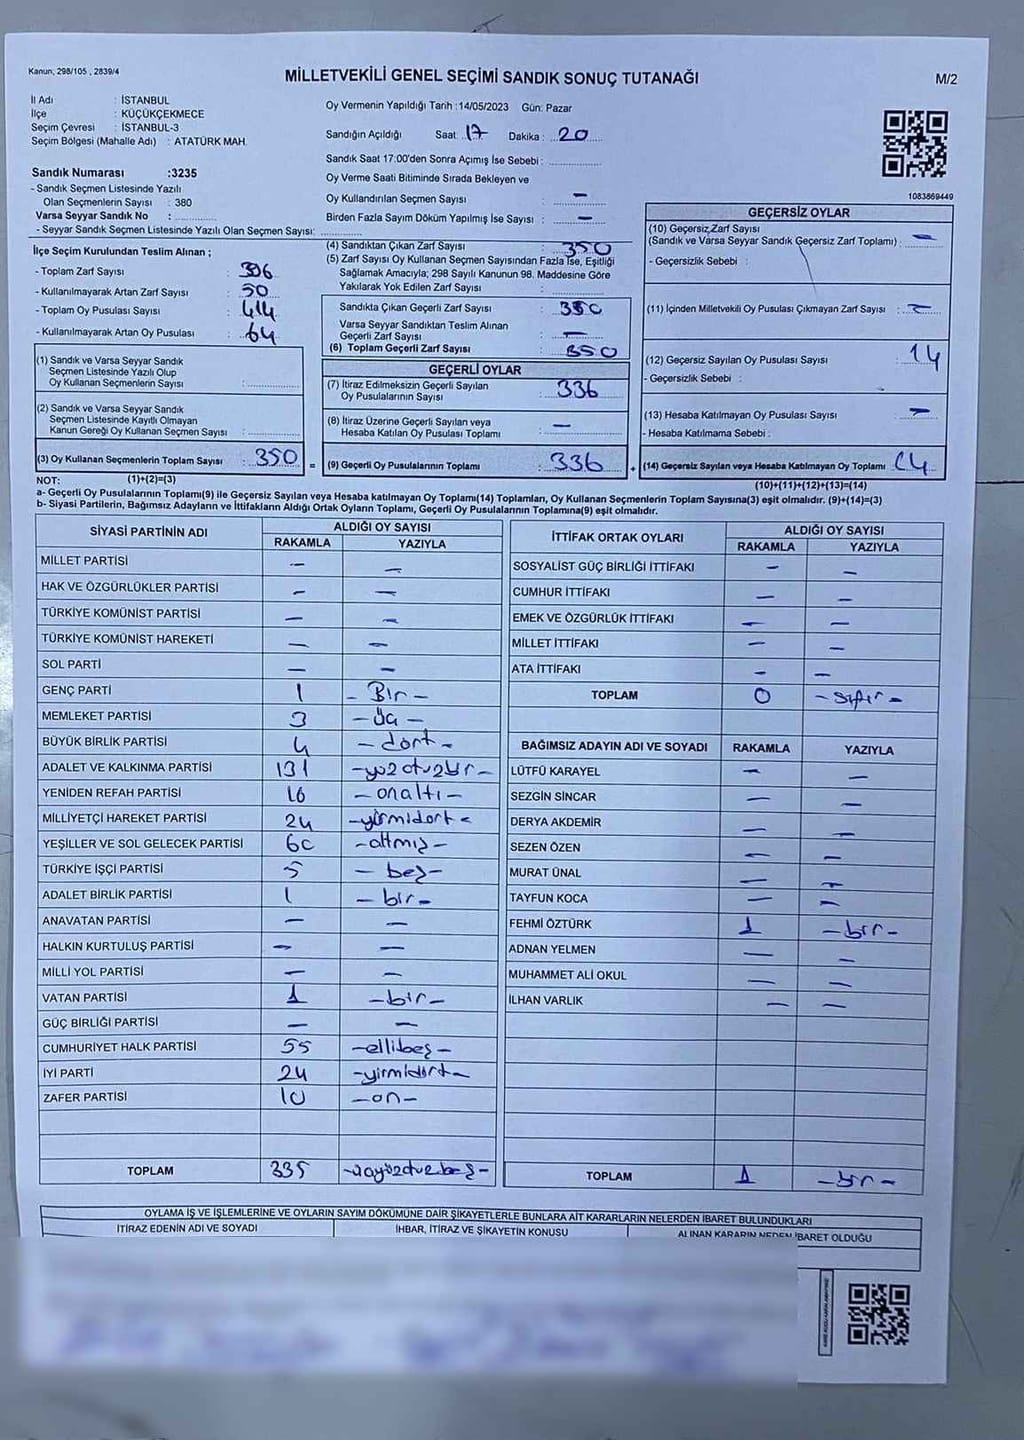 Kanun, 298/105 , 2839/4
MİLLETVEKİLİ GENEL SEÇİMİ SANDIK SONUÇ TUTANAĞI
M/2
İl Adı : İSTANBUL
İlçe : KÜÇÜKÇEKMECE
Seçim Çevresi : İSTANBUL-3
Seçim Bölgesi (Mahalle Adı) : ATATÜRK MAH.
Sandık Numarası :3235
- Sandık Seçmen Listesinde Yazılı
Olan Seçmenlerin Sayısı : 380
Varsa Seyyar Sandık No :
- Seyyar Sandık Seçmen Listesinde Yazılı Olan Seçmen Sayısı:
Oy Vermenin Yapıldığı Tarih :14/05/2023 Gün: Pazar
Sandığın Açıldığı Saat: 17 Dakika : 20
Sandık Saat 17:00'den Sonra Açımış İse Sebebi :
Oy Verme Saati Bitiminde Sırada Bekleyen ve
Oy Kullandırılan Seçmen Sayısı : –
Birden Fazla Sayım Döküm Yapılmış İse Sayısı : –
1083869449
İlçe Seçim Kurulundan Teslim Alınan ;
- Toplam Zarf Sayısı :
- Kullanılmayarak Artan Zarf Sayısı : 50
- Toplam Oy Pusulası Sayısı : 414
- Kullanılmayarak Artan Oy Pusulası : 64
(1) Sandık ve Varsa Seyyar Sandık
Seçmen Listesinde Yazılı Olup
Oy Kullanan Seçmenlerin Sayısı :
(2) Sandık ve Varsa Seyyar Sandık
Seçmen Listesinde Kayıtlı Olmayan
Kanun Gereği Oy Kullanan Seçmen Sayısı :
(3) Oy Kullanan Seçmenlerin Toplam Sayısı : 350
(4) Sandıktan Çıkan Zarf Sayısı : 350
(5) Zarf Sayısı Oy Kullanan Seçmen Sayısından Fazla İse, Eşitliği
Sağlamak Amacıyla; 298 Sayılı Kanunun 98. Maddesine Göre
Yakılarak Yok Edilen Zarf Sayısı :
Sandıkta Çıkan Geçerli Zarf Sayısı : 350
Varsa Seyyar Sandıktan Teslim Alınan
Geçerli Zarf Sayısı : –
(6) Toplam Geçerli Zarf Sayısı : 350
GEÇERLİ OYLAR
(7) İtiraz Edilmeksizin Geçerli Sayılan
Oy Pusulalarının Sayısı : 336
(8) İtiraz Üzerine Geçerli Sayılan veya
Hesaba Katılan Oy Pusulası Toplamı : –
= (9) Geçerli Oy Pusulalarının Toplamı : 336 +
GEÇERSİZ OYLAR
(10) Geçersiz Zarf Sayısı
(Sandık ve Varsa Seyyar Sandık Geçersiz Zarf Toplamı) : –
- Geçersizlik Sebebi :
(11) İçinden Milletvekili Oy Pusulası Çıkmayan Zarf Sayısı : –
(12) Geçersiz Sayılan Oy Pusulası Sayısı : 14
- Geçersizlik Sebebi :
(13) Hesaba Katılmayan Oy Pusulası Sayısı : –
- Hesaba Katılmama Sebebi :
(14) Geçersiz Sayılan veya Hesaba Katılmayan Oy Toplamı : 14
NOT: (1)+(2)=(3)
(10)+(11)+(12)+(13)=(14)
a- Geçerli Oy Pusulalarının Toplamı(9) ile Geçersiz Sayılan veya Hesaba katılmayan Oy Toplamı(14) Toplamları, Oy Kullanan Seçmenlerin Toplam Sayısına(3) eşit olmalıdır. (9)+(14)=(3)
b- Siyasi Partilerin, Bağımsız Adayların ve İttifakların Aldığı Ortak Oyların Toplamı, Geçerli Oy Pusulalarının Toplamına(9) eşit olmalıdır.
SİYASİ PARTİNİN ADI ALDIĞI OY SAYISI
RAKAMLA YAZIYLA
MİLLET PARTİSİ – –
HAK VE ÖZGÜRLÜKLER PARTİSİ – –
TÜRKİYE KOMÜNİST PARTİSİ – –
TÜRKİYE KOMÜNİST HAREKETİ – –
SOL PARTİ – –
GENÇ PARTİ 1 - Bir -
MEMLEKET PARTİSİ 3 - Üç -
BÜYÜK BİRLİK PARTİSİ 4 - dört -
ADALET VE KALKINMA PARTİSİ 131 -yüzotuzbir-
YENİDEN REFAH PARTİSİ 16 - onaltı -
MİLLİYETÇİ HAREKET PARTİSİ 24 -yirmidört-
YEŞİLLER VE SOL GELECEK PARTİSİ 60 -altmış-
TÜRKİYE İŞÇİ PARTİSİ 5 - beş-
ADALET BİRLİK PARTİSİ 1 - bir-
ANAVATAN PARTİSİ – –
HALKIN KURTULUŞ PARTİSİ – –
MİLLİ YOL PARTİSİ – –
VATAN PARTİSİ 1 -bir-
GÜÇ BİRLİĞİ PARTİSİ – –
CUMHURİYET HALK PARTİSİ 55 -ellibeş-
İYİ PARTİ 24 -yirmidört-
ZAFER PARTİSİ 10 -on-
TOPLAM 335 -üçyüzotuzbeş-
İTTİFAK ORTAK OYLARI ALDIĞI OY SAYISI
RAKAMLA YAZIYLA
SOSYALİST GÜÇ BİRLİĞİ İTTİFAKI – –
CUMHUR İTTİFAKI – –
EMEK VE ÖZGÜRLÜK İTTİFAKI – –
MİLLET İTTİFAKI – –
ATA İTTİFAKI – –
TOPLAM 0 -sıfır-
BAĞIMSIZ ADAYIN ADI VE SOYADI RAKAMLA YAZIYLA
LÜTFÜ KARAYEL – –
SEZGİN SİNCAR – –
DERYA AKDEMİR – –
SEZEN ÖZEN – –
MURAT ÜNAL – –
TAYFUN KOCA – –
FEHMİ ÖZTÜRK 1 -bir-
ADNAN YELMEN – –
MUHAMMET ALİ OKUL – –
İLHAN VARLIK – –
TOPLAM 1 -bir-
OYLAMA İŞ VE İŞLEMLERİNE VE OYLARIN SAYIM DÖKÜMÜNE DAİR ŞİKAYETLERLE BUNLARA AİT KARARLARIN NELERDEN İBARET BULUNDUKLARI
İTİRAZ EDENİN ADI VE SOYADI İHBAR, İTİRAZ VE ŞİKAYETİN KONUSU ALINAN KARARIN NEDEN İBARET OLDUĞU